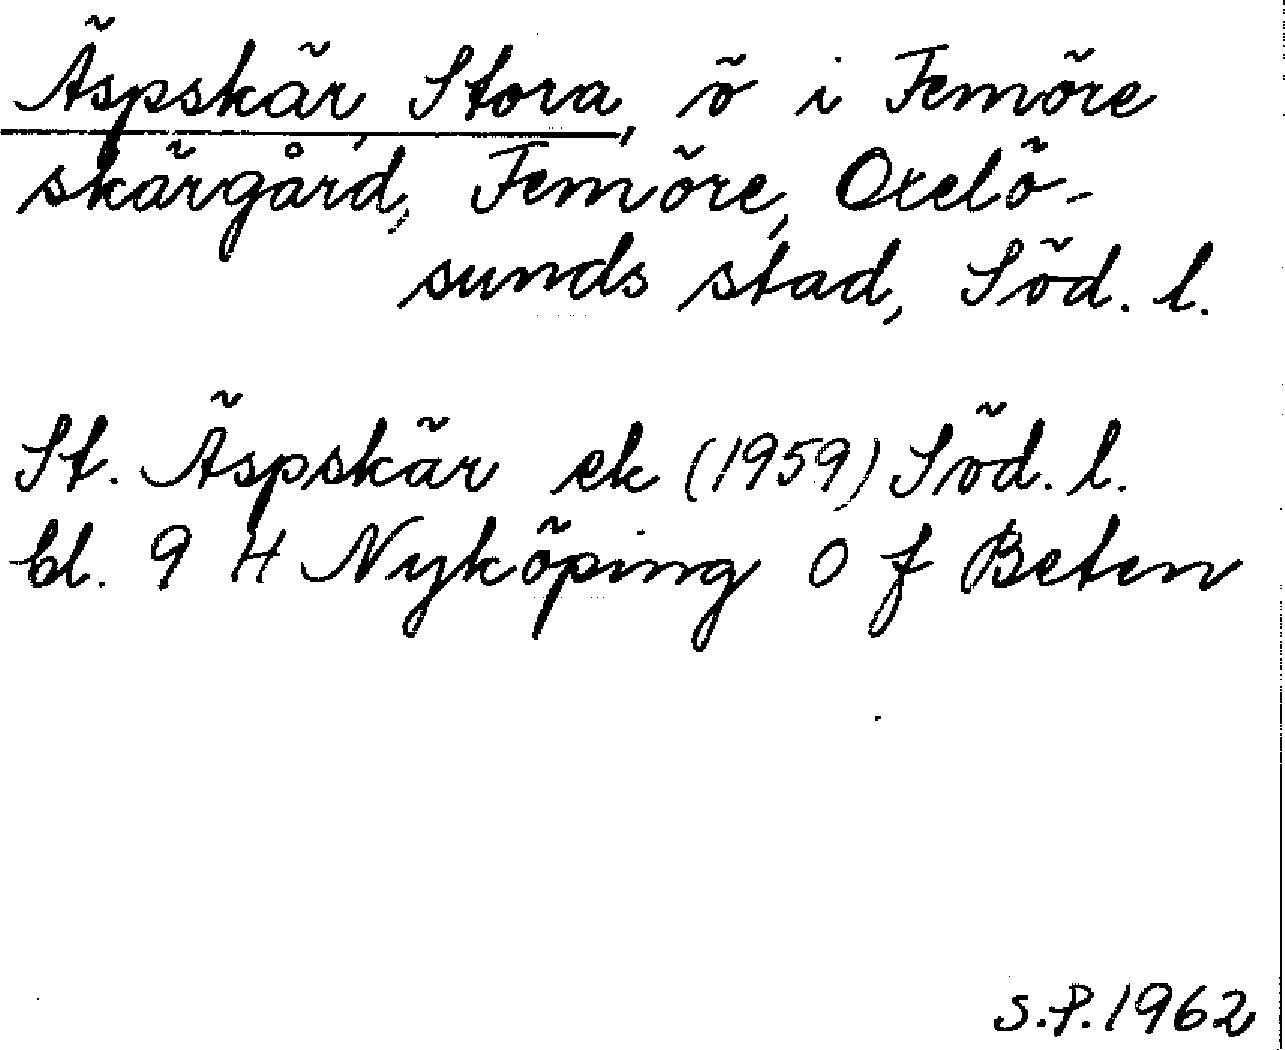 Äspskär, Stora, ö i Femöre
skärgård, Femöre, Oxelö-
sunds stad, Söd. l.
St. Äspskär ek (1959) Söd. l.
bl. 9 H Nyköping 0 f Beten
S.P. 1962